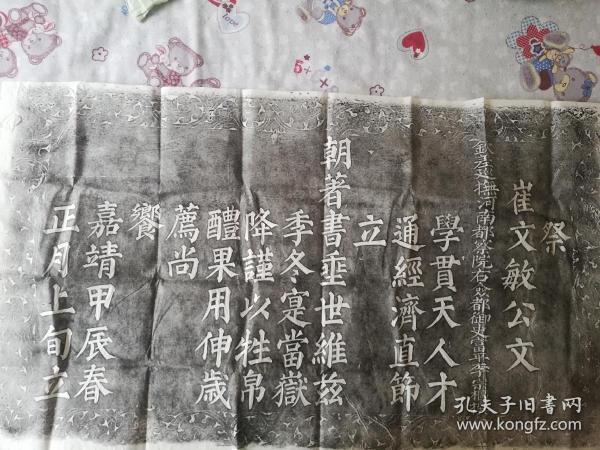 祭
崔文敏公文
欽差巡撫河南都察院右副都御史
學貫天人才
通經濟直節
立
朝著書垂世維茲
季冬寔當嶽
降謹以牲帛
醴果用伸歲
薦尚
饗
嘉靖甲辰春
正月上旬立
孔夫子旧书网
www.kongfz.com